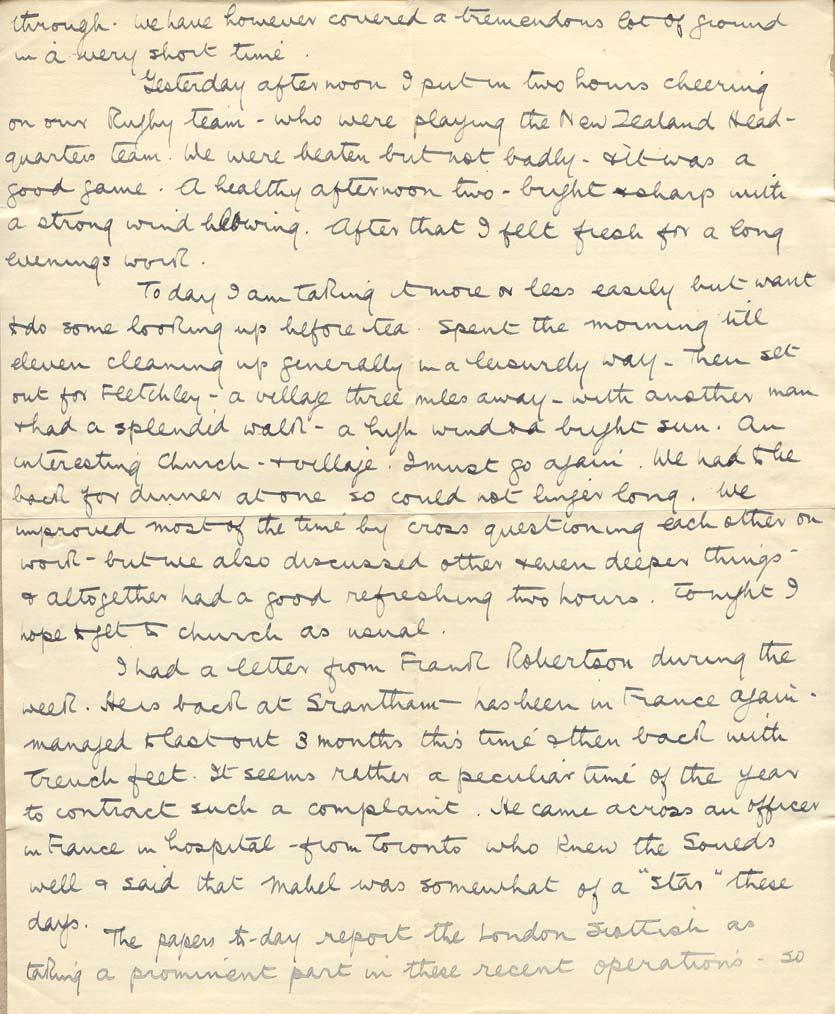 through. We have however covered a tremendous lot of ground
in a very short time.
Yesterday afternoon I put in two hours cheering
on our Rugby team - who were playing the New Zealand Head-
quarters team. We were beaten but not badly - & it was a
good game. A healthy afternoon two - bright & sharp with
a strong wind blowing. After that I felt fresh for a long
evenings work.
Today I am taking it more or less easily but want
to do some looking up before tea. Spent the morning till
eleven cleaning up generally in a leisurely way - Then set
out for Fletchley - a village three miles away - with another man
& had a splendid walk - a high wind & a bright sun. An
interesting Church - & village. I must go again. We had to be
back for dinner at one so could not linger long. We
improved most of the time by cross questioning each other on
work - but we also discussed other & even deeper things -
& altogether had a good refreshing two hours. Tonight I
hope to get to church as usual.
I had a letter from Frank Robertson during the
week. He is back at Grantham - has been in France again -
managed to last out 3 months this time & then back with
trench feet. It seems rather a peculiar time of the year
to contract such a complaint. He came across an officer
in France in hospital - from Toronto who knew the
well & said that Mabel was somewhat of a "star" these
days.
The papers to-day report the London Scottish as
taking a prominent part in these recent operations - so